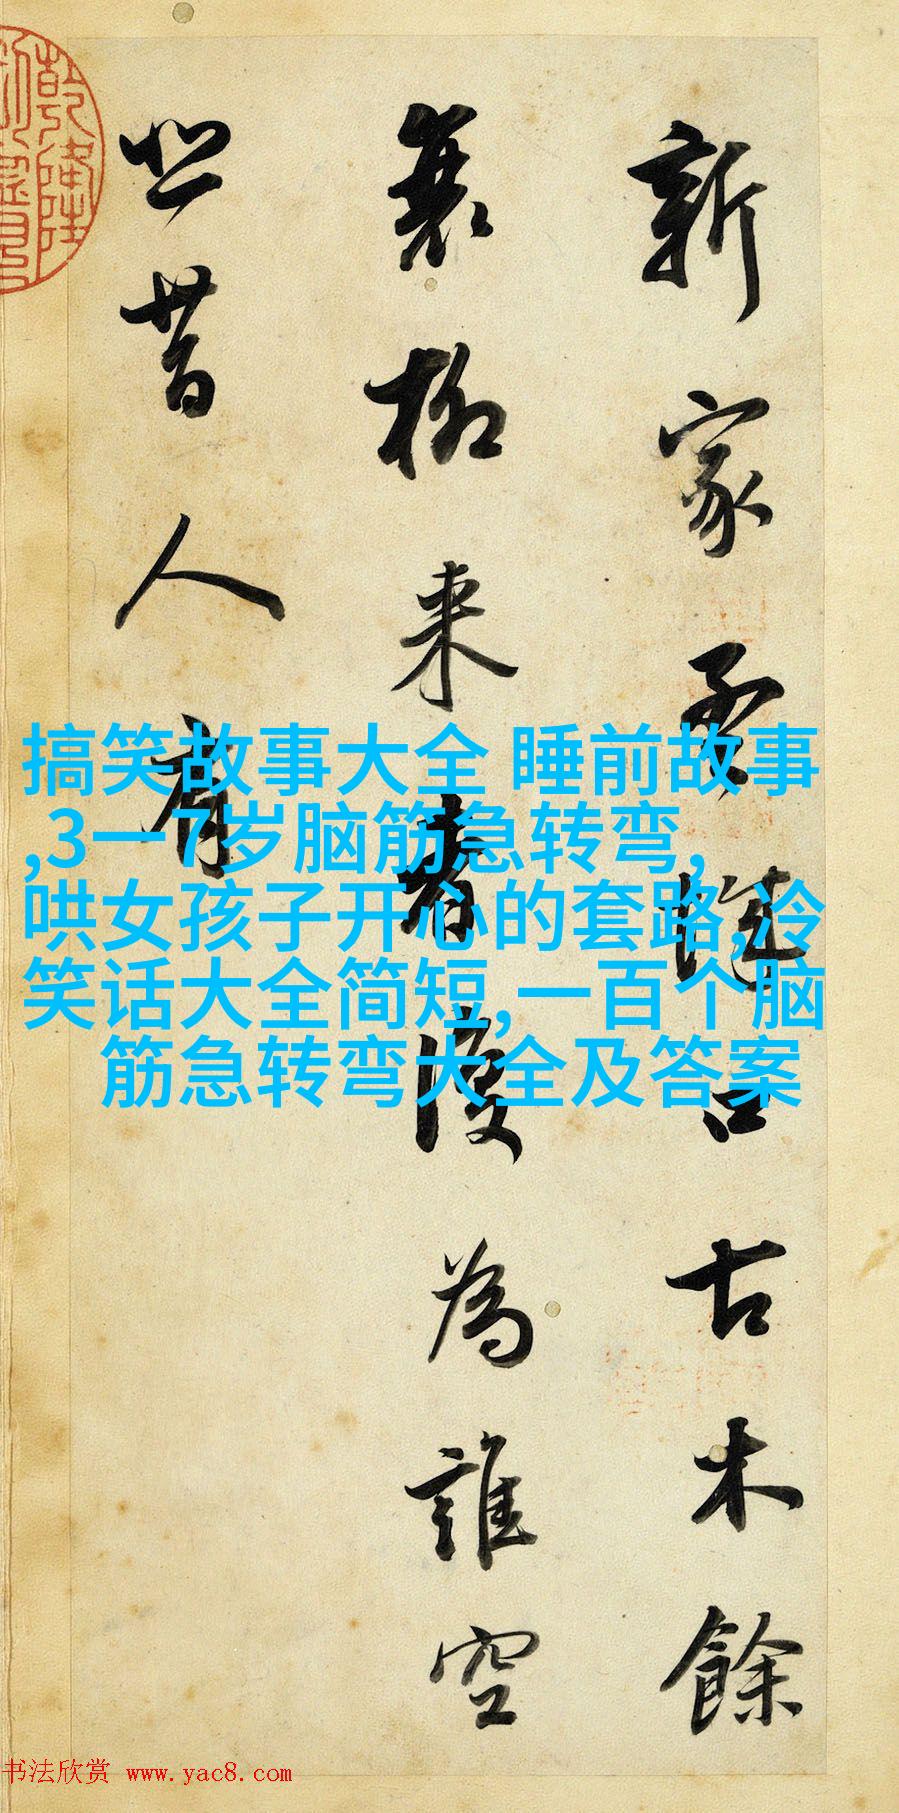 新家孟城口古木餘
衰柳来者復為誰空
悲昔人有
乾隆
搞笑故事大全 睡前故事
,3一7岁脑筋急转弯,
哄女孩子开心的套路,冷
笑话大全简短,一百个脑
筋急转弯大全及答案
书法欣赏 www.yac8.com